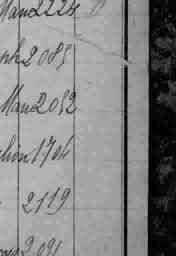 Man 2224
ph 2085
Man 2052
tion 1704
2119
2091